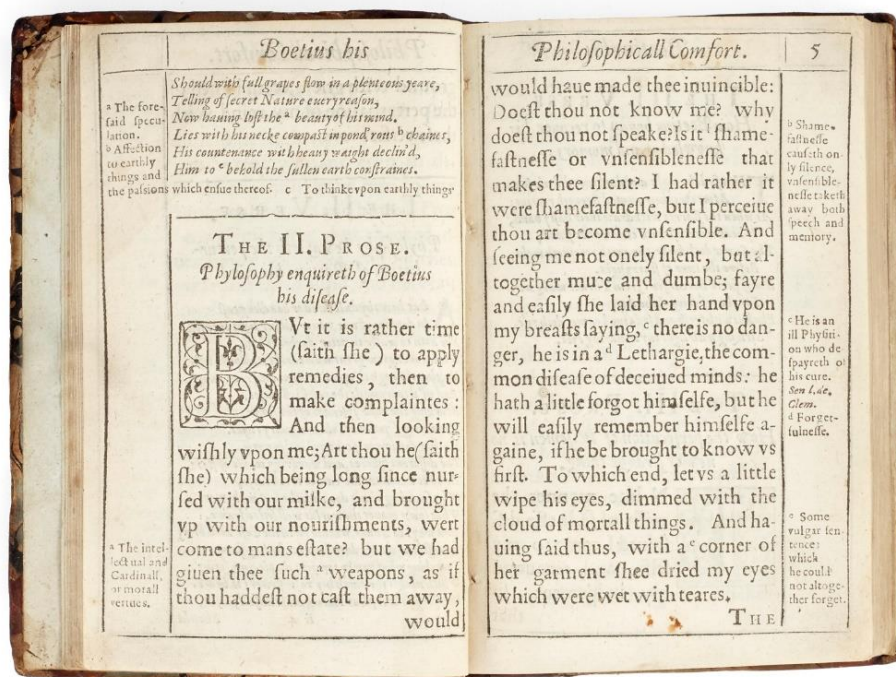 Boetius his
Should with full grapes flow in a plenteous yeare,
Telling of ſecret Nature euery reaſon,
Now hauing loſt the ᵃ beauty of his mind.
Lies with his necke compaſt in pond'rous ᵇ chaines,
His countenance with heauy waight declin'd,
Him to ᶜ behold the ſullen earth conſtraines.
ᵃ The fore-
ſaid ſpecu-
lation.
ᵇ Affection
to earthly
things and
the paſsions which enſue thereof. c To thinke vpon earthly things
THE II. PROSE.
Phyloſophy enquireth of Boetius
his diſeaſe.
BVt it is rather time
(ſaith ſhe) to apply
remedies, then to
make complaintes :
And then looking
wiſhly vpon me; Art thou he (ſaith
ſhe) which being long ſince nur-
ſed with our milke, and brought
vp with our nouriſhments, wert
come to mans eſtate? but we had
giuen thee ſuch ᵃ weapons, as if
thou haddeſt not caſt them away,
would
ᵃ The intel-
lectual and
Cardinall,
or morall
vertues.
Philoſophicall Comfort. 5
would haue made thee inuincible:
Doeſt thou not know me? why
doeſt thou not ſpeake? Is it ᵇ ſhame-
faſtneſſe or vnſenſibleneſſe that
makes thee ſilent? I had rather it
were ſhamefaſtneſſe, but I perceiue
thou art become vnſenſible. And
ſeeing me not onely ſilent, but al-
together mute and dumbe; fayre
and eaſily ſhe laid her hand vpon
my breaſts ſaying, ᶜ there is no dan-
ger, he is in a ᵈ Lethargie, the com-
mon diſeaſe of deceiued minds: he
hath a little forgot himſelfe, but he
will eaſily remember himſelfe a-
gaine, if he be brought to know vs
firſt. To which end, let vs a little
wipe his eyes, dimmed with the
cloud of mortall things. And ha-
uing ſaid thus, with a ᵉ corner of
her garment ſhee dried my eyes
which were wet with teares.
THE
ᵇ Shame-
faſtneſſe
cauſeth on-
ly ſilence,
vnſenſible-
neſſe taketh
away both
ſpeech and
memory.
ᶜ He is an
ill Phyſiti-
on who de
ſpayreth of
his cure.
Sen l. de.
Clem.
ᵈ Forget-
fulneſſe.
ᵉ Some
vulgar ſen-
tences
which
he could
not altoge-
ther forget.